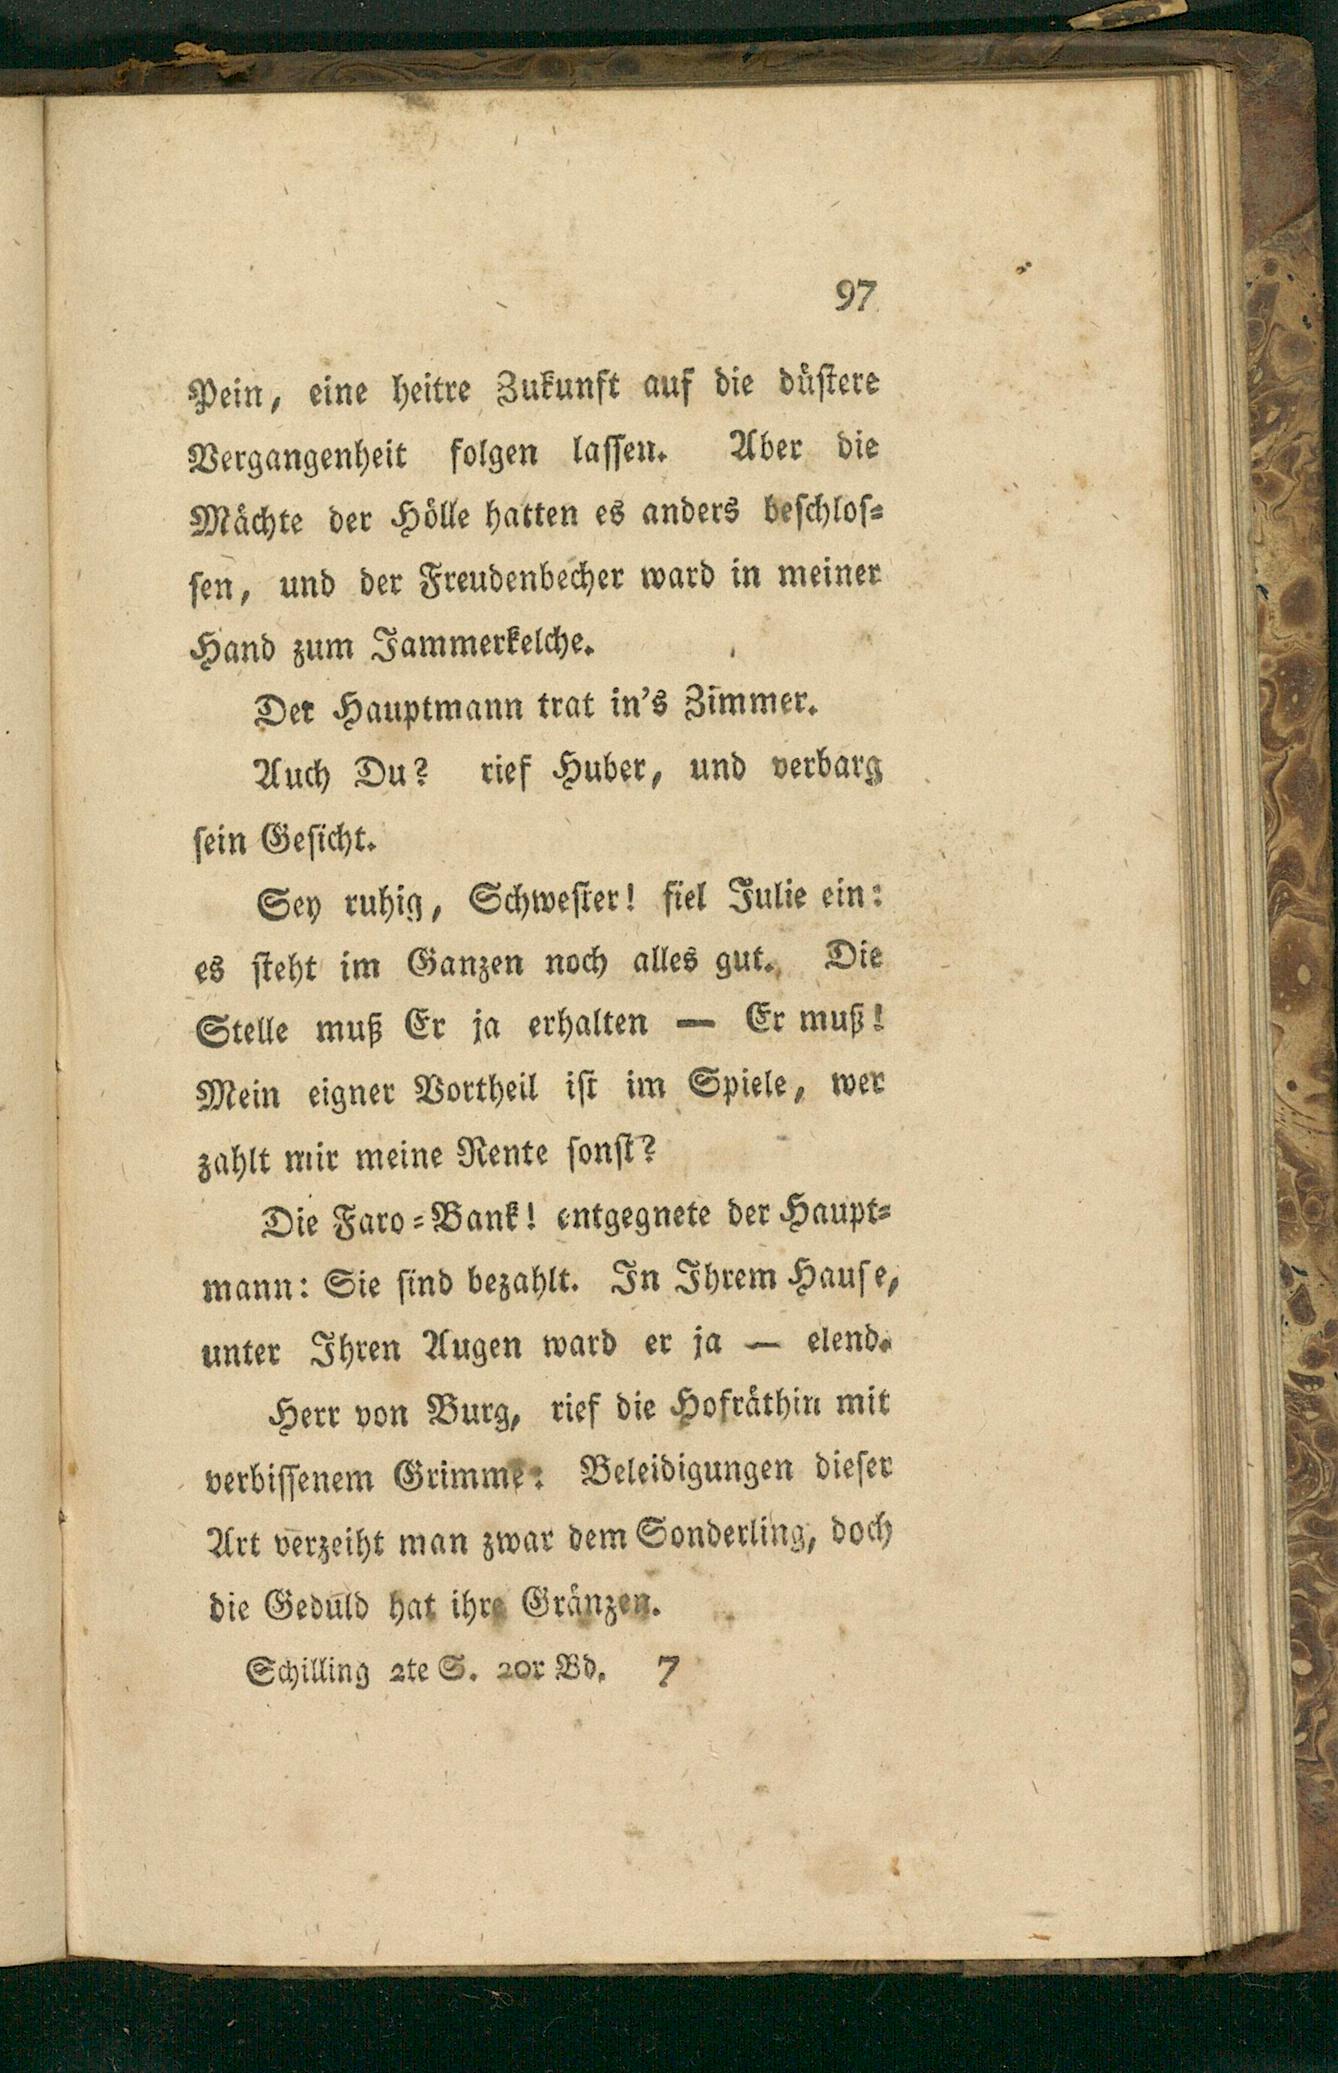 97
Pein, eine heitre Zukunft auf die düstere
Vergangenheit folgen lassen. Aber die
Mächte der Hölle hatten es anders beschlos=
sen, und der Freudenbecher ward in meiner
Hand zum Jammerkelche.
Der Hauptmann trat in's Zimmer.
Auch Du? rief Huber, und verbarg
sein Gesicht.
Sey ruhig, Schwester! fiel Julie ein:
es steht im Ganzen noch alles gut. Die
Stelle muß Er ja erhalten — Er muß!
Mein eigner Vortheil ist im Spiele, wer
zahlt mir meine Rente sonst?
Die Faro=Bank! entgegnete der Haupt=
mann: Sie sind bezahlt. In Ihrem Hause,
unter Ihren Augen ward er ja — elend.
Herr von Burg, rief die Hofräthin mit
verbissenem Grimme: Beleidigungen dieser
Art verzeiht man zwar dem Sonderling, doch
die Geduld hat ihre Gränzen.
Schilling 2te S. 20r Bd. 7